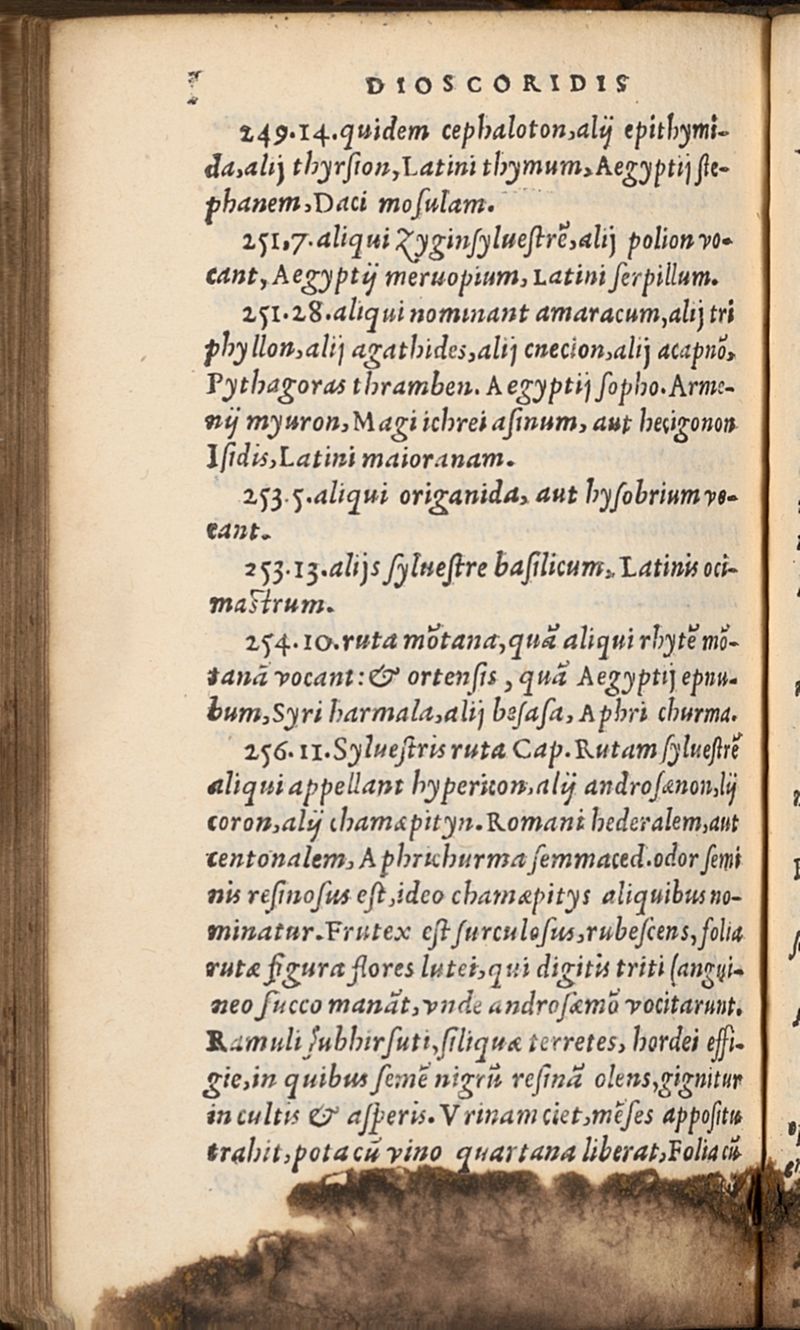 DIOSCORIDIS
249.14.quidem cephaloton,alij epithymi-
da,alij thyrſion,Latini thymum,Aegyptij ſte-
phanem,Daci moſulam.
251,7.aliqui Zyginſylueſtrē,alij polion vo-
cant,Aegyptij meruopium,Latini ſerpillum.
251.28.aliqui nominant amaracum,alij tri
phyllon,alij agathides,alij cnecion,alij acapnō,
Pythagoras thramben. Aegyptij ſopho.Arme-
nij myuron,Magi ichrei aſinum, aut heſigonon
Iſidis,Latini maioranam.
253.5.aliqui origanida, aut hyſobrium vo-
cant.
253.13.alijs ſylueſtre baſilicum, Latinis oci-
maſtrum.
254.10.ruta mōtana,quā aliqui rhytē mō-
tanā vocant:& ortenſis , quā Aegyptij epnu-
bum,Syri harmala,alij beſaſa, Aphri churma.
256.11.Sylueſtris ruta Cap.Rutam ſylueſtrē
aliqui appellant hypericon,alij androſænon,lij
coron,alij chamæpityn.Romani hederalem,aut
centonalem, Aphrichurma ſemmaced.odor ſemi
nis reſinoſus eſt,ideo chamæpitys aliquibus no-
minatur.Frutex eſt ſurculoſus,rubeſcens,folia
rutæ figura flores lutei,qui digitis triti ſangui-
neo ſucco manāt,vnde androſæmō vocitarunt.
Ramuli ſubhirſuti,ſiliquæ terretes, hordei effi-
gie,in quibus ſemē nigrū reſinā olens,gignitur
in cultis & aſperis.Vrinam ciet,mēſes appoſitu
trahit,pota cū vino quartana liberat,Folia cū